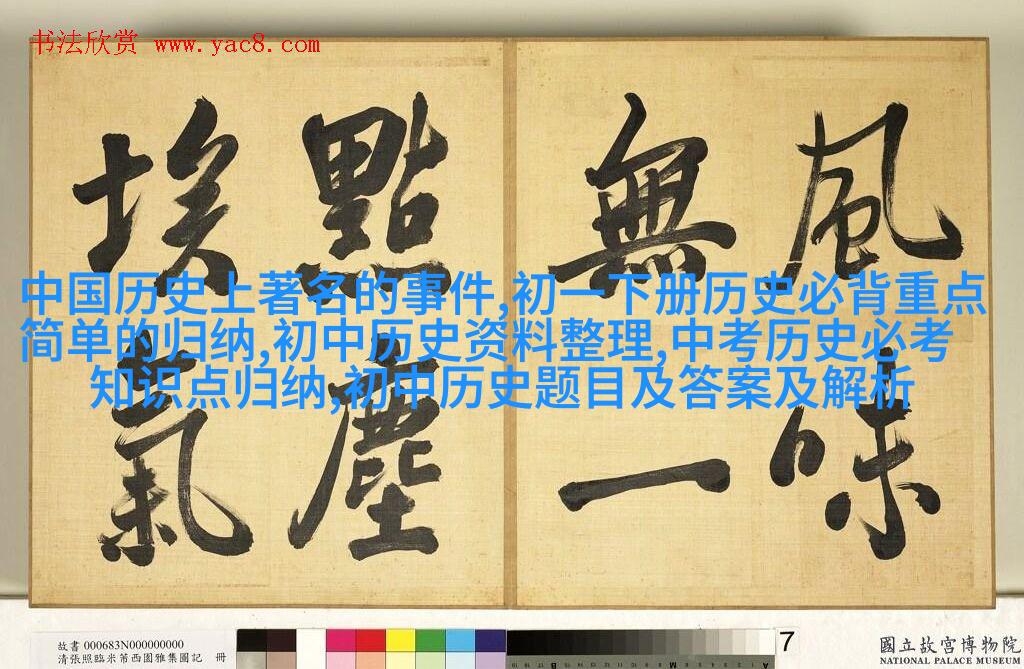 书法欣赏 www.yac8.com
風味
無一
點塵
埃氣
中国历史上著名的事件,初一下册历史必背重点
简单的归纳,初中历史资料整理,中考历史必考
知识点归纳,初中历史题目及答案及解析
故書 000683N000000000
清張照臨米芾西園雅集圖記 冊
7
國立故宮博物院
NATIONAL PALACE MUSEUM